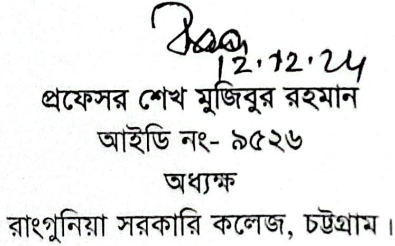 12.12.24
প্রফেসর শেখ মুজিবুর রহমান
আইডি নং- ৯৫২৬
অধ্যক্ষ
রাংগুনিয়া সরকারি কলেজ, চট্টগ্রাম।